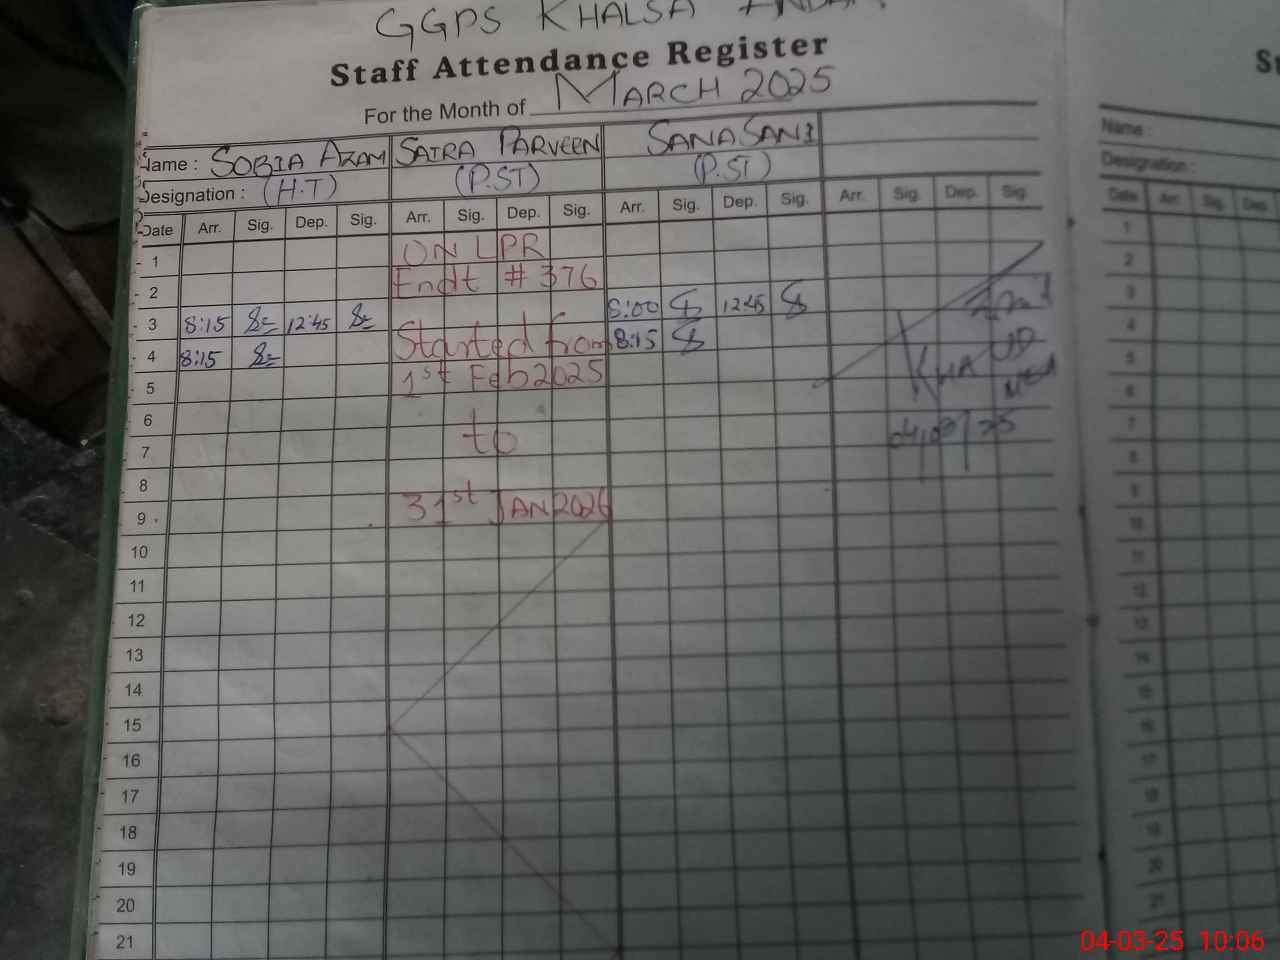 GGPS KHALSA
Staff Attendance Register
For the Month of MARCH 2025
Name : SOBIA AZAM SAIRA PARVEEN SANA SANI
Designation : (H.T) (P.ST) (P.ST)
Date Arr. Sig. Dep. Sig. Arr. Sig. Dep. Sig. Arr. Sig. Dep. Sig. Arr. Sig. Dep. Sig.
1 ON LPR
2 Endt # 376
3 8:15 12:45 8:00 12:45
4 8:15 Started from 8:15
5 1st Feb 2025
6
7 to
8
9 31st JAN 2026
10
11
12
13
14
15
16
17
18
19
20
21
04/03/25
Name :
Designation :
Date Arr. Sig. Dep.
1
2
3
4
5
6
7
8
9
10
11
12
13
14
15
16
17
18
19
20
21
04-03-25 10:06